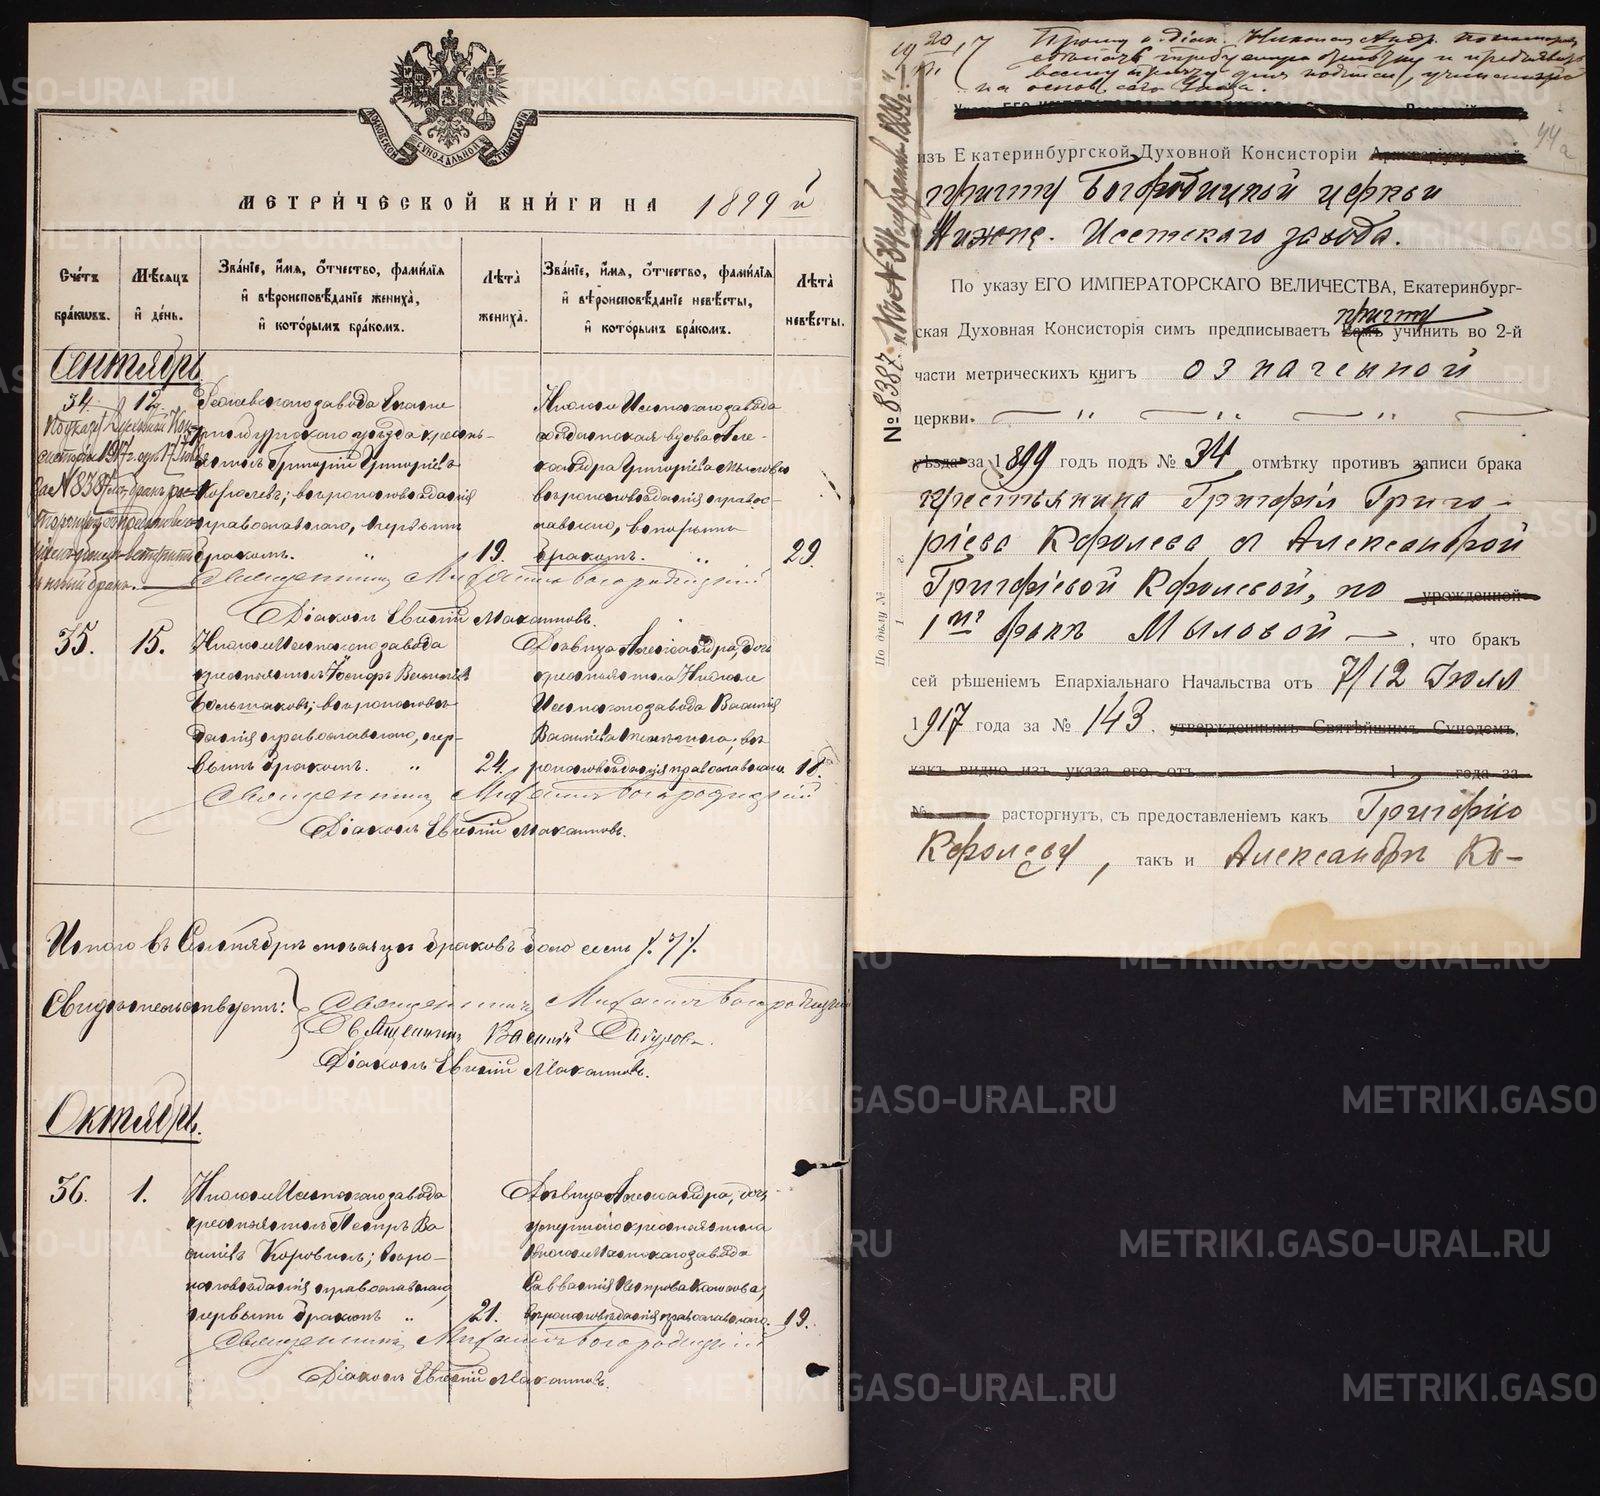 ДУХОВСКОЙ СѴНОДАЛЬНОЙ ТИПОГРАФІИ
МЕТРИЧЕСКОЙ КНИГИ НА 1899 й
Счетъ браковъ.
Мѣсяцъ и день.
Званіе, имя, отчество, фамилія и вѣроисповѣданіе жениха, и которымъ бракомъ.
Лѣта жениха.
Званіе, имя, отчество, фамилія и вѣроисповѣданіе невѣсты, и которымъ бракомъ.
Лѣта невѣсты.
Сентябрь
34.
12.
По указу Духовной Кон-
систоріи 1917 г. отъ 17 Іюля
за № 8387 бракъ рас-
торгнутъ
вступить
въ новый бракъ.
завода Екате-
ринбургскаго уѣзда кресть-
янинъ Григорій Григоріевъ
Королевъ; вѣроисповѣданія
православнаго, первымъ
бракомъ. "
19.
Нижне Исетскаго завода
солдатская вдова Але-
ксандра Григоріева Мылова
вѣроисповѣданія правос-
лавнаго, вторымъ
бракомъ. "
29.
Священникъ Михаилъ Богородицкій
Діаконъ Евгеній Макаловъ.
35.
15.
Нижне Исетскаго завода
крестьянинъ
Большаковъ; вѣроисповѣ-
данія православнаго, пер-
вымъ бракомъ. "
24.
Дѣвица Александра, дочь
крестьянина Нижне
Исетскаго завода Василія
Васильева вѣ-
роисповѣданія православнаго
18.
Священникъ Михаилъ Богородицкій
Діаконъ Евгеній Макаловъ.
Итого въ Сентябрѣ мѣсяцѣ браковъ было семь /. 7 /.
Свидѣтельствуютъ: Священникъ Михаилъ Богородицкій
Священникъ Василій
Діаконъ Евгеній Макаловъ.
Октябрь.
36.
1.
Нижне Исетскаго завода
крестьянинъ Петръ Ва-
сильевъ Коровинъ; вѣро-
исповѣданія православнаго,
первымъ бракомъ "
21.
Дѣвица Александра, дочь
умершаго крестьянина
Нижне Исетскаго завода
Савватія Петрова
вѣроисповѣданія православнаго.
19.
Священникъ Михаилъ Богородицкій
Діаконъ Евгеній Макаловъ.
19 20/VII 17 Прошу о. діак. Николая Андр.
сдѣлать требуемую и предъявить
всему причту для подписи,
на основ. сего Указа.
44а
изъ Екатеринбургской Духовной Консисторіи
причту Богородицкой церкви
Нижне-Исетскаго завода.
По указу ЕГО ИМПЕРАТОРСКАГО ВЕЛИЧЕСТВА, Екатеринбург-
ская Духовная Консисторія симъ предписываетъ причту учинить во 2-й
части метрическихъ книгъ означенной
церкви " " "
уѣзда за 1899 годъ подъ № 34 отмѣтку противъ записи брака
крестьянина Григорія Григо-
ріева Королева съ Александрой
Григоріевой Королевой, по урожденной
1му браку Мыловой —, что бракъ
сей рѣшеніемъ Епархіальнаго Начальства отъ 7/12 Іюля
1917 года за № 143, утвержденнымъ Святѣйшимъ Сѵнодомъ,
какъ видно изъ указа его отъ 1 года за
№ расторгнутъ, съ предоставленіемъ какъ Григорію
Королеву, такъ и Александрѣ Ко-
№ 8387.
По дѣлу №
METRIKI.GASO-URAL.RU